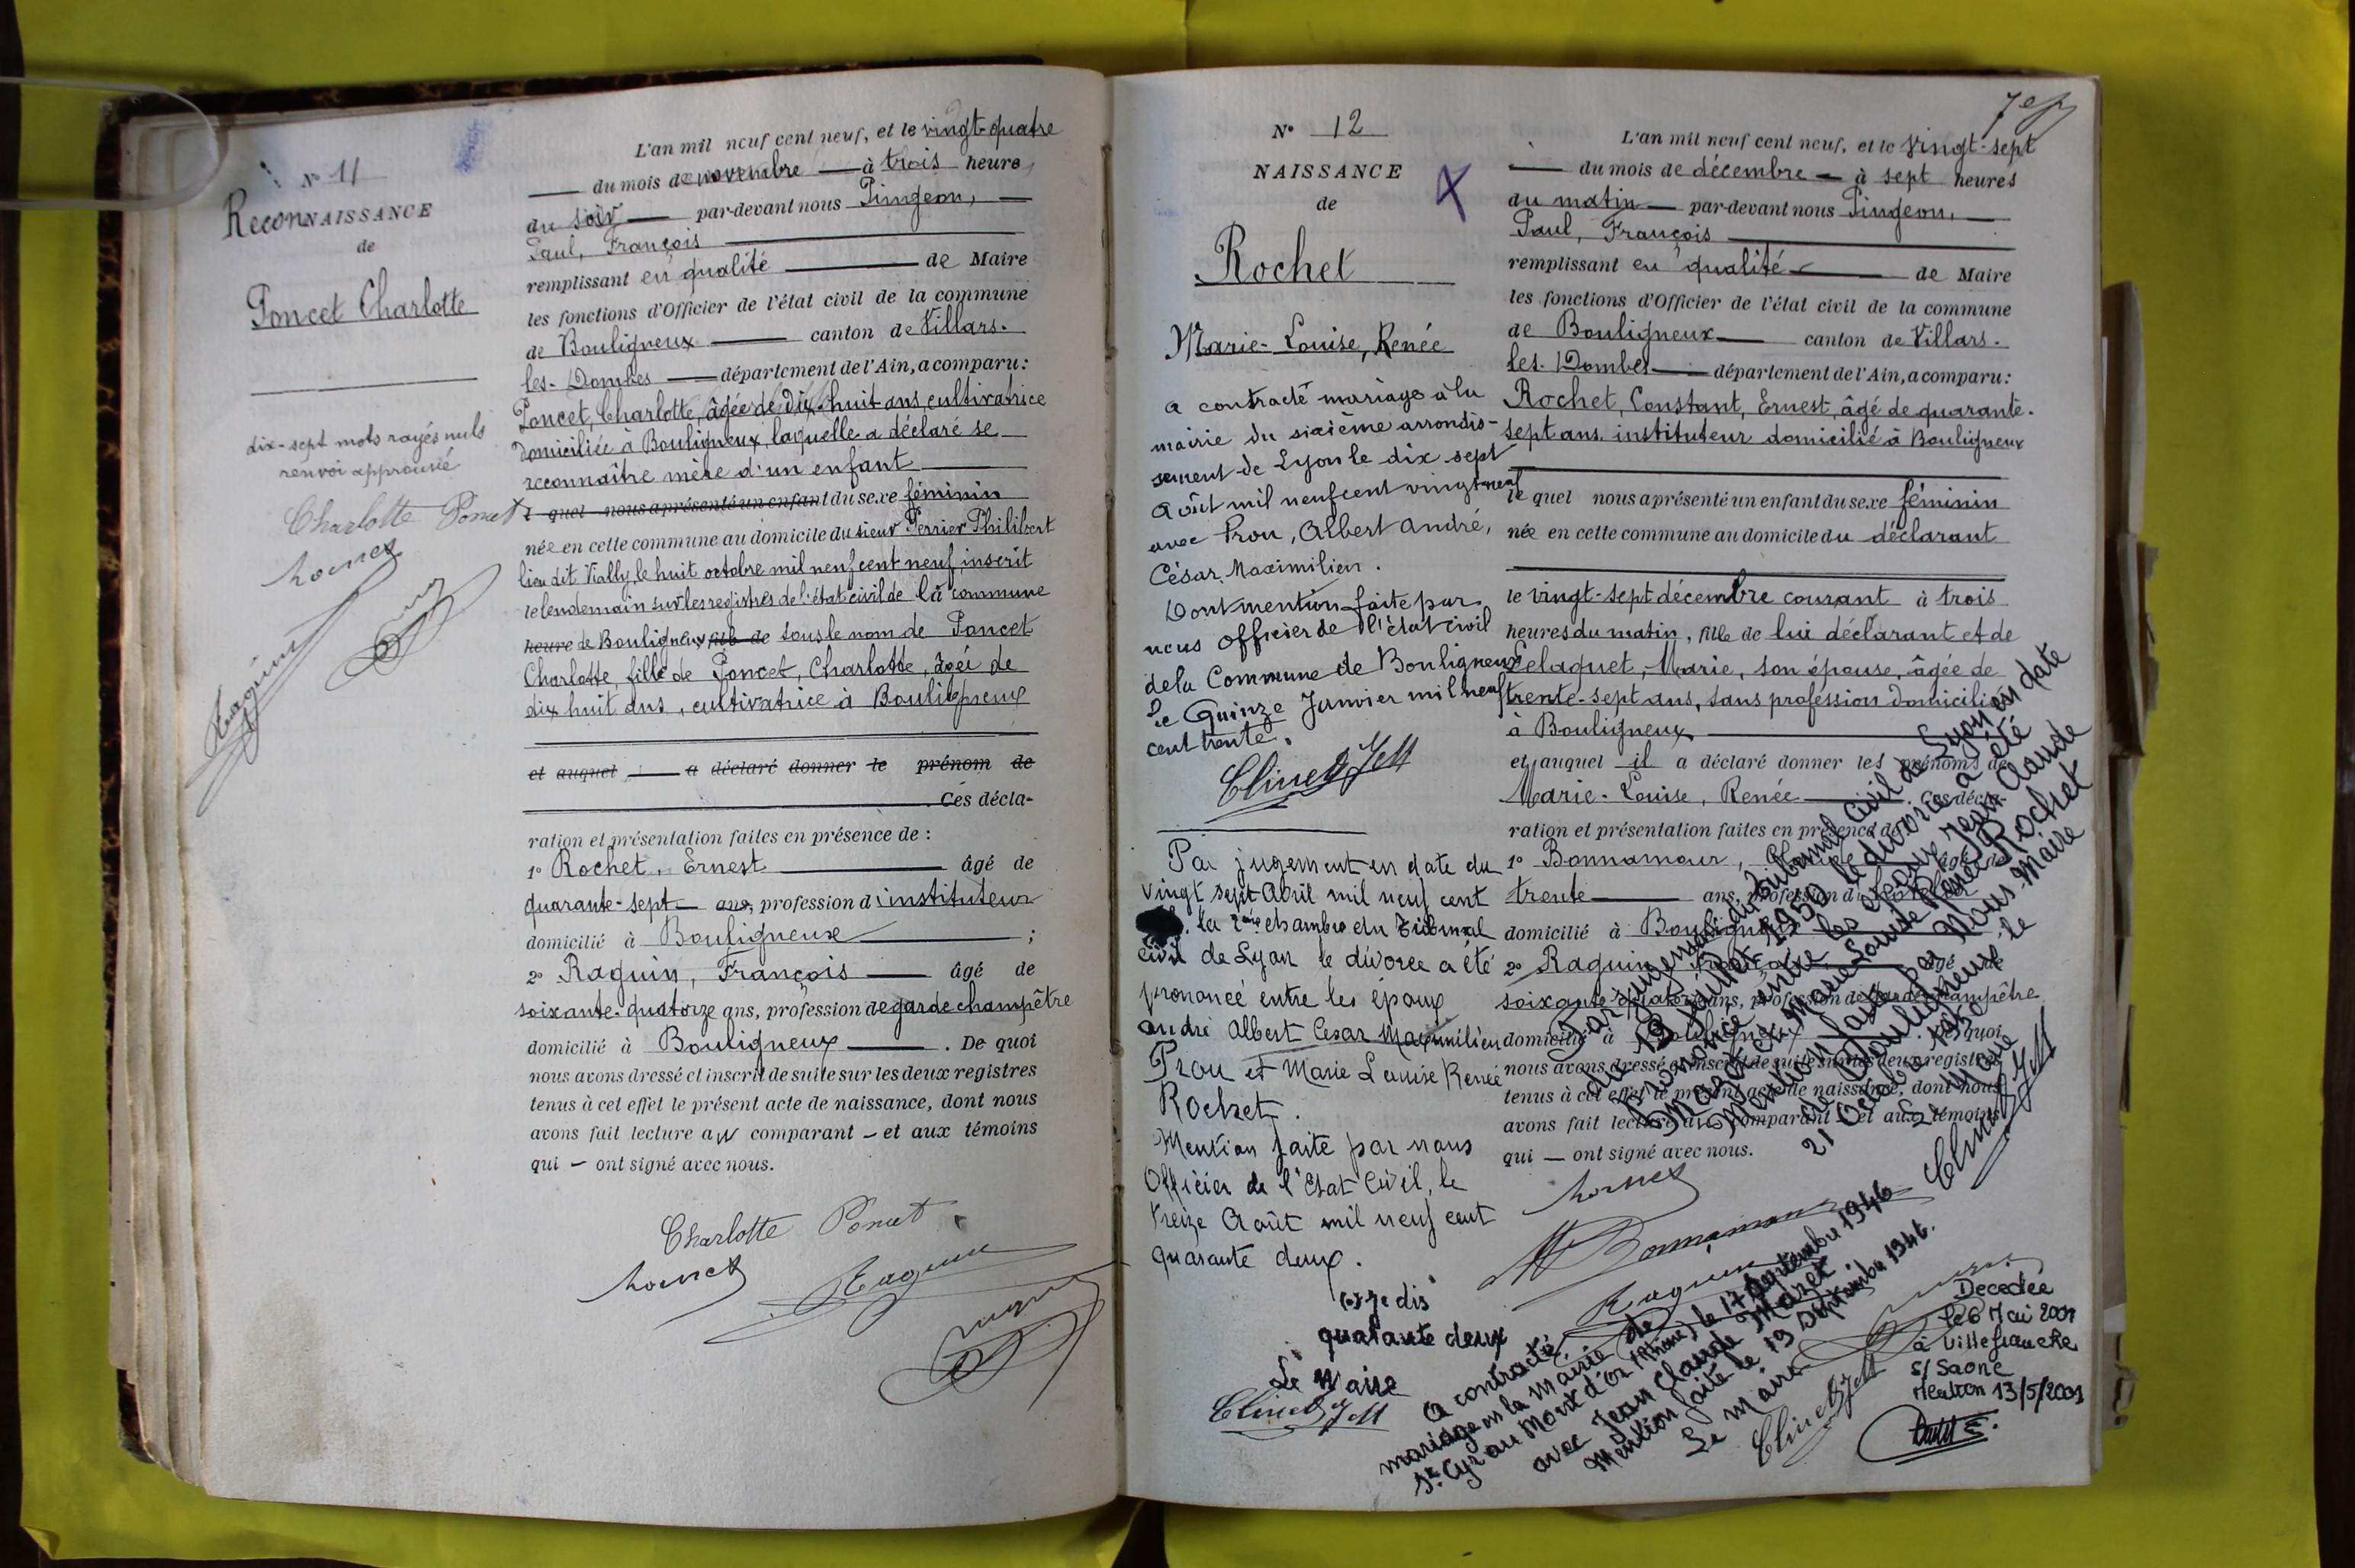 N° 11
ReconNAISSANCE
de
Poncet Charlotte
dix-sept mots rayés nuls
renvoi approuvé
Charlotte Poncet
Raquin
L'an mil neuf cent neuf, et le vingt-quatre
du mois de novembre à trois heure
du soir par-devant nous Pingeon,
Paul, François
remplissant en qualité de Maire
les fonctions d'Officier de l'état civil de la commune
de Bouligneux canton de Villars-
les-Dombes département de l'Ain, a comparu:
Poncet, Charlotte, âgée de dix-huit ans, cultivatrice
domiciliée à Bouligneux, laquelle a déclaré se
reconnaître mère d'un enfant
quel nous a présenté un enfant du sexe féminin
née en cette commune au domicile du sieur Perrier Philibert
lieu dit Vially, le huit octobre mil neuf cent neuf inscrit
le lendemain sur les registres de l'état civil de la commune
heure de Bouligneux fils de sous le nom de Poncet
Charlotte, fille de Poncet, Charlotte, âgée de
dix huit ans, cultivatrice à Bouligneux
et auquel a déclaré donner le prénom de
. Ces décla-
ration et présentation faites en présence de :
1° Rochet, Ernest âgé de
quarante-sept ans, profession d'instituteur
domicilié à Bouligneux ;
2° Raquin, François âgé de
soixante-quatorze ans, profession de garde champêtre
domicilié à Bouligneux . De quoi
nous avons dressé et inscrit de suite sur les deux registres
tenus à cet effet le présent acte de naissance, dont nous
avons fait lecture au comparant – et aux témoins
qui – ont signé avec nous.
Charlotte Poncet
Raquin
N° 12
NAISSANCE
de
Rochet
Marie-Louise, Renée
a contracté mariage à la
mairie du sixième arrondis-
sement de Lyon le dix sept
Août mil neuf cent vingt neuf
avec Prou, Albert André,
César, Maximilien.
Dont mention faite par
nous officier de l'état civil
de la Commune de Bouligneux
le Quinze Janvier mil neuf
cent trente.
Par jugement en date du
vingt sept Avril mil neuf cent
la 2ème chambre du Tribunal
civil de Lyon le divorce a été
prononcé entre les époux
André Albert César Maximilien
Prou et Marie Louise Renée
Rochet.
Mention faite par nous
Officier de l'Etat Civil, le
treize Août mil neuf cent
quarante deux.
quarante deux
Le Maire
7e
L'an mil neuf cent neuf, et le vingt-sept
du mois de décembre à sept heures
du matin par-devant nous Pingeon,
Paul, François
remplissant en qualité de Maire
les fonctions d'Officier de l'état civil de la commune
de Bouligneux canton de Villars-
les-Dombes département de l'Ain, a comparu:
Rochet, Constant, Ernest, âgé de quarante-
sept ans, instituteur domicilié à Bouligneux
le quel nous a présenté un enfant du sexe féminin
née en cette commune au domicile du déclarant
le vingt-sept décembre courant à trois
heures du matin, fille de lui déclarant et de
Pelaquet, Marie, son épouse, âgée de
trente-sept ans, sans profession domiciliée
à Bouligneux
et auquel il a déclaré donner les prénoms de
Marie-Louise, Renée . Ces décla-
ration et présentation faites en présence de
1° Bonnamour, âgé de
trente ans, profession
domicilié à Bouligneux
2° Raquin, François, âgé de
soixante-quatorze ans, profession de garde champêtre
domicilié à Bouligneux . De quoi
nous avons dressé et inscrit de suite sur les deux registres
tenus à cet effet le présent acte de naissance, dont nous
avons fait lecture au comparant et aux témoins
qui — ont signé avec nous.
Bonnamour
Raquin
Par jugement du Tribunal Civil de Lyon en date
du 13 Juillet 1950 le divorce a été
prononcé entre les époux Jean Claude
Mazet et Marie Louise Renée Rochet
Mention faite par Nous Maire
de Bouligneux le
21 Octobre
Le Maire
A contracté
mariage en la mairie de
St Cyr au Mont d'Or (Rhône) le 17 Septembre 1946
avec Jean Claude Mazet.
Mention faite le 19 Septembre 1946.
Le Maire
Décédée
le 6 Mai 2001
à Villefranche
s/ Saône
Mention 13/5/2001